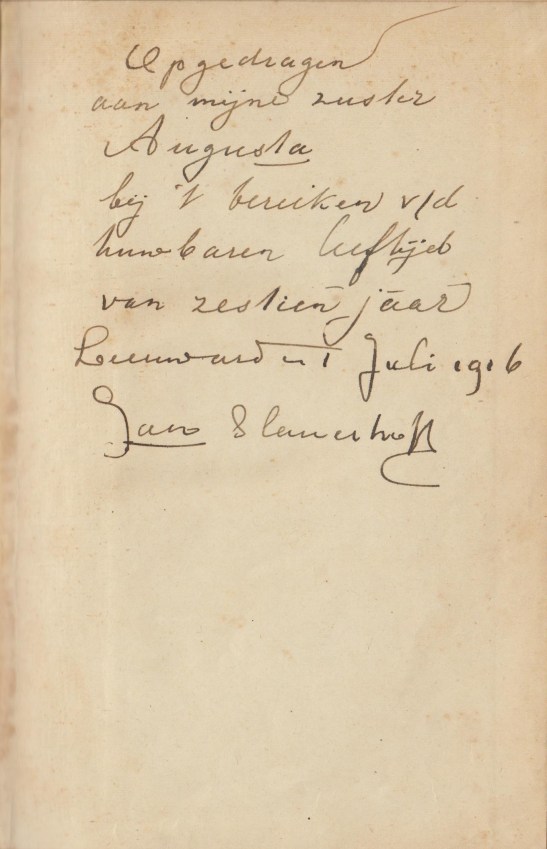 Opgedragen
aan mijne zuster
Augusta
bij 't bereiken v/d
huwbaren leeftijd
van zestien jaar
Leeuwarden 1 Juli 1916
Jan Slauerhoff